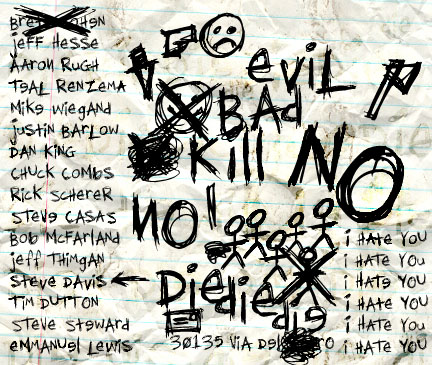 jeff Hesse
Aaron Rugh
Teal Renzema
Mike Wiegand
justin Barlow
Dan King
Chuck Combs
Rick Scherer
Steve Casas
Bob McFarland
jeff Thimgan
Steve Davis
Tim Dutton
Steve Steward
emmanuel Lewis
evil
BAd
Kill NO
NO!
Die die die
30135 Via
i HAte YOU
i HAte YOU
i HAte YOU
i HAte YOU
i HAte YOU
i HAte YOU